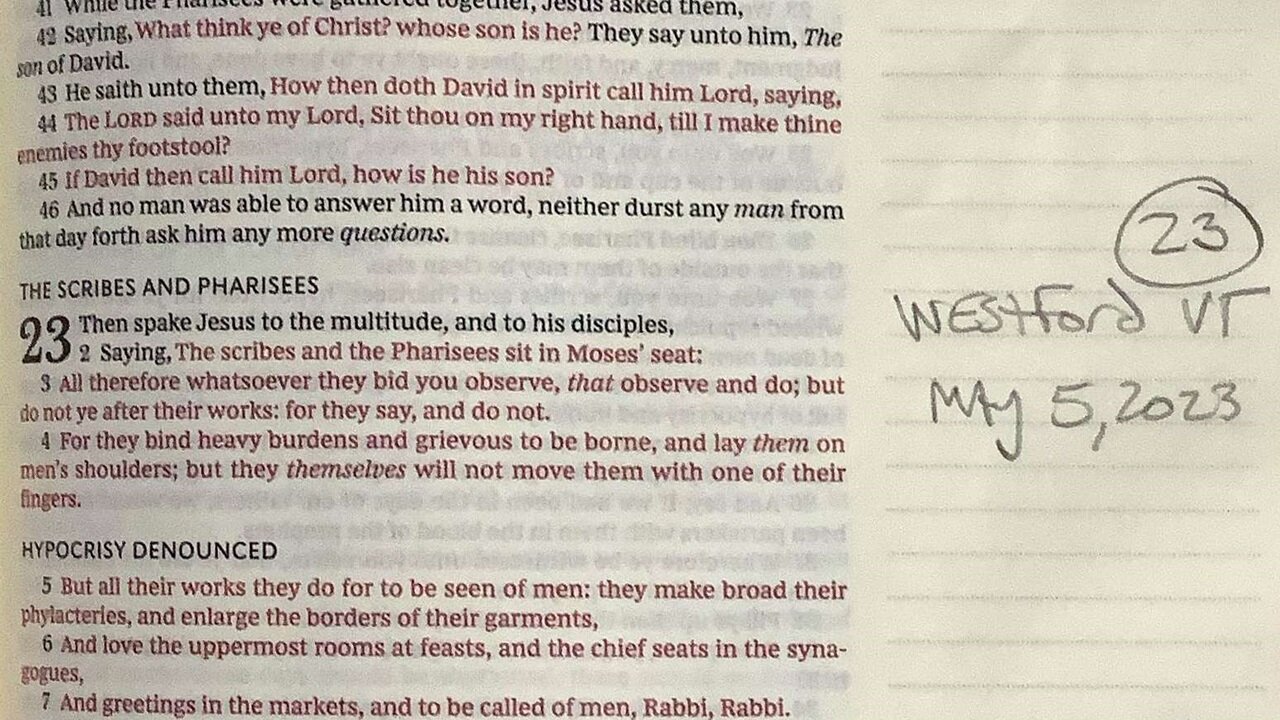 41 While the Pharisees were gathered together, Jesus asked them,
42 Saying, What think ye of Christ? whose son is he? They say unto him, The
son of David.
43 He saith unto them, How then doth David in spirit call him Lord, saying,
44 The LORD said unto my Lord, Sit thou on my right hand, till I make thine
enemies thy footstool?
45 If David then call him Lord, how is he his son?
46 And no man was able to answer him a word, neither durst any man from
that day forth ask him any more questions.
THE SCRIBES AND PHARISEES
23 Then spake Jesus to the multitude, and to his disciples,
2 Saying, The scribes and the Pharisees sit in Moses' seat:
3 All therefore whatsoever they bid you observe, that observe and do; but
do not ye after their works: for they say, and do not.
4 For they bind heavy burdens and grievous to be borne, and lay them on
men's shoulders; but they themselves will not move them with one of their
fingers.
HYPOCRISY DENOUNCED
5 But all their works they do for to be seen of men: they make broad their
phylacteries, and enlarge the borders of their garments,
6 And love the uppermost rooms at feasts, and the chief seats in the syna-
gogues,
7 And greetings in the markets, and to be called of men, Rabbi, Rabbi.
23
WESTford VT
MAy 5, 2023